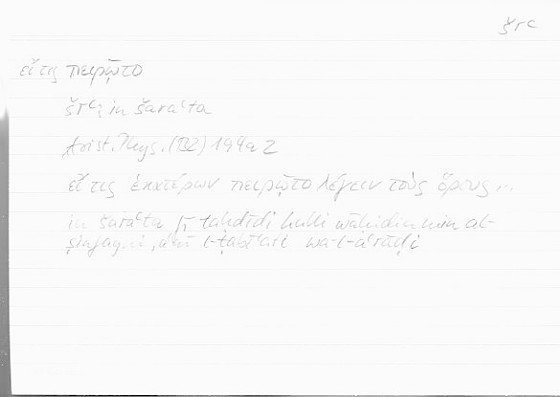 šrʿ
εἴ τις πειρῷτο
šrʿ; in šaraʿta
Arist. Phys. (B2) 194a2
εἴ τις ἑκατέρων πειρῷτο λέγειν τοὺς ὅρους...
in šaraʿta fī taḥdīdi kulli wāḥidin min al-
ṣinfayni, aʿnī l-ṭabīʿati wa-l-aʿrāḍi